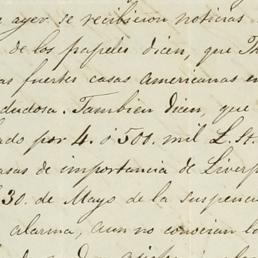 ayer se recibieron noticias
de los papeles dicen, que Th
as fuertes casas Americanas en
dudosa. Tambien dicen, que
ado por 4. ó 500. mil L. St.
asas de importancia de Liverp
30. de Mayo de la suspenci
alarma, aun no conocian lo